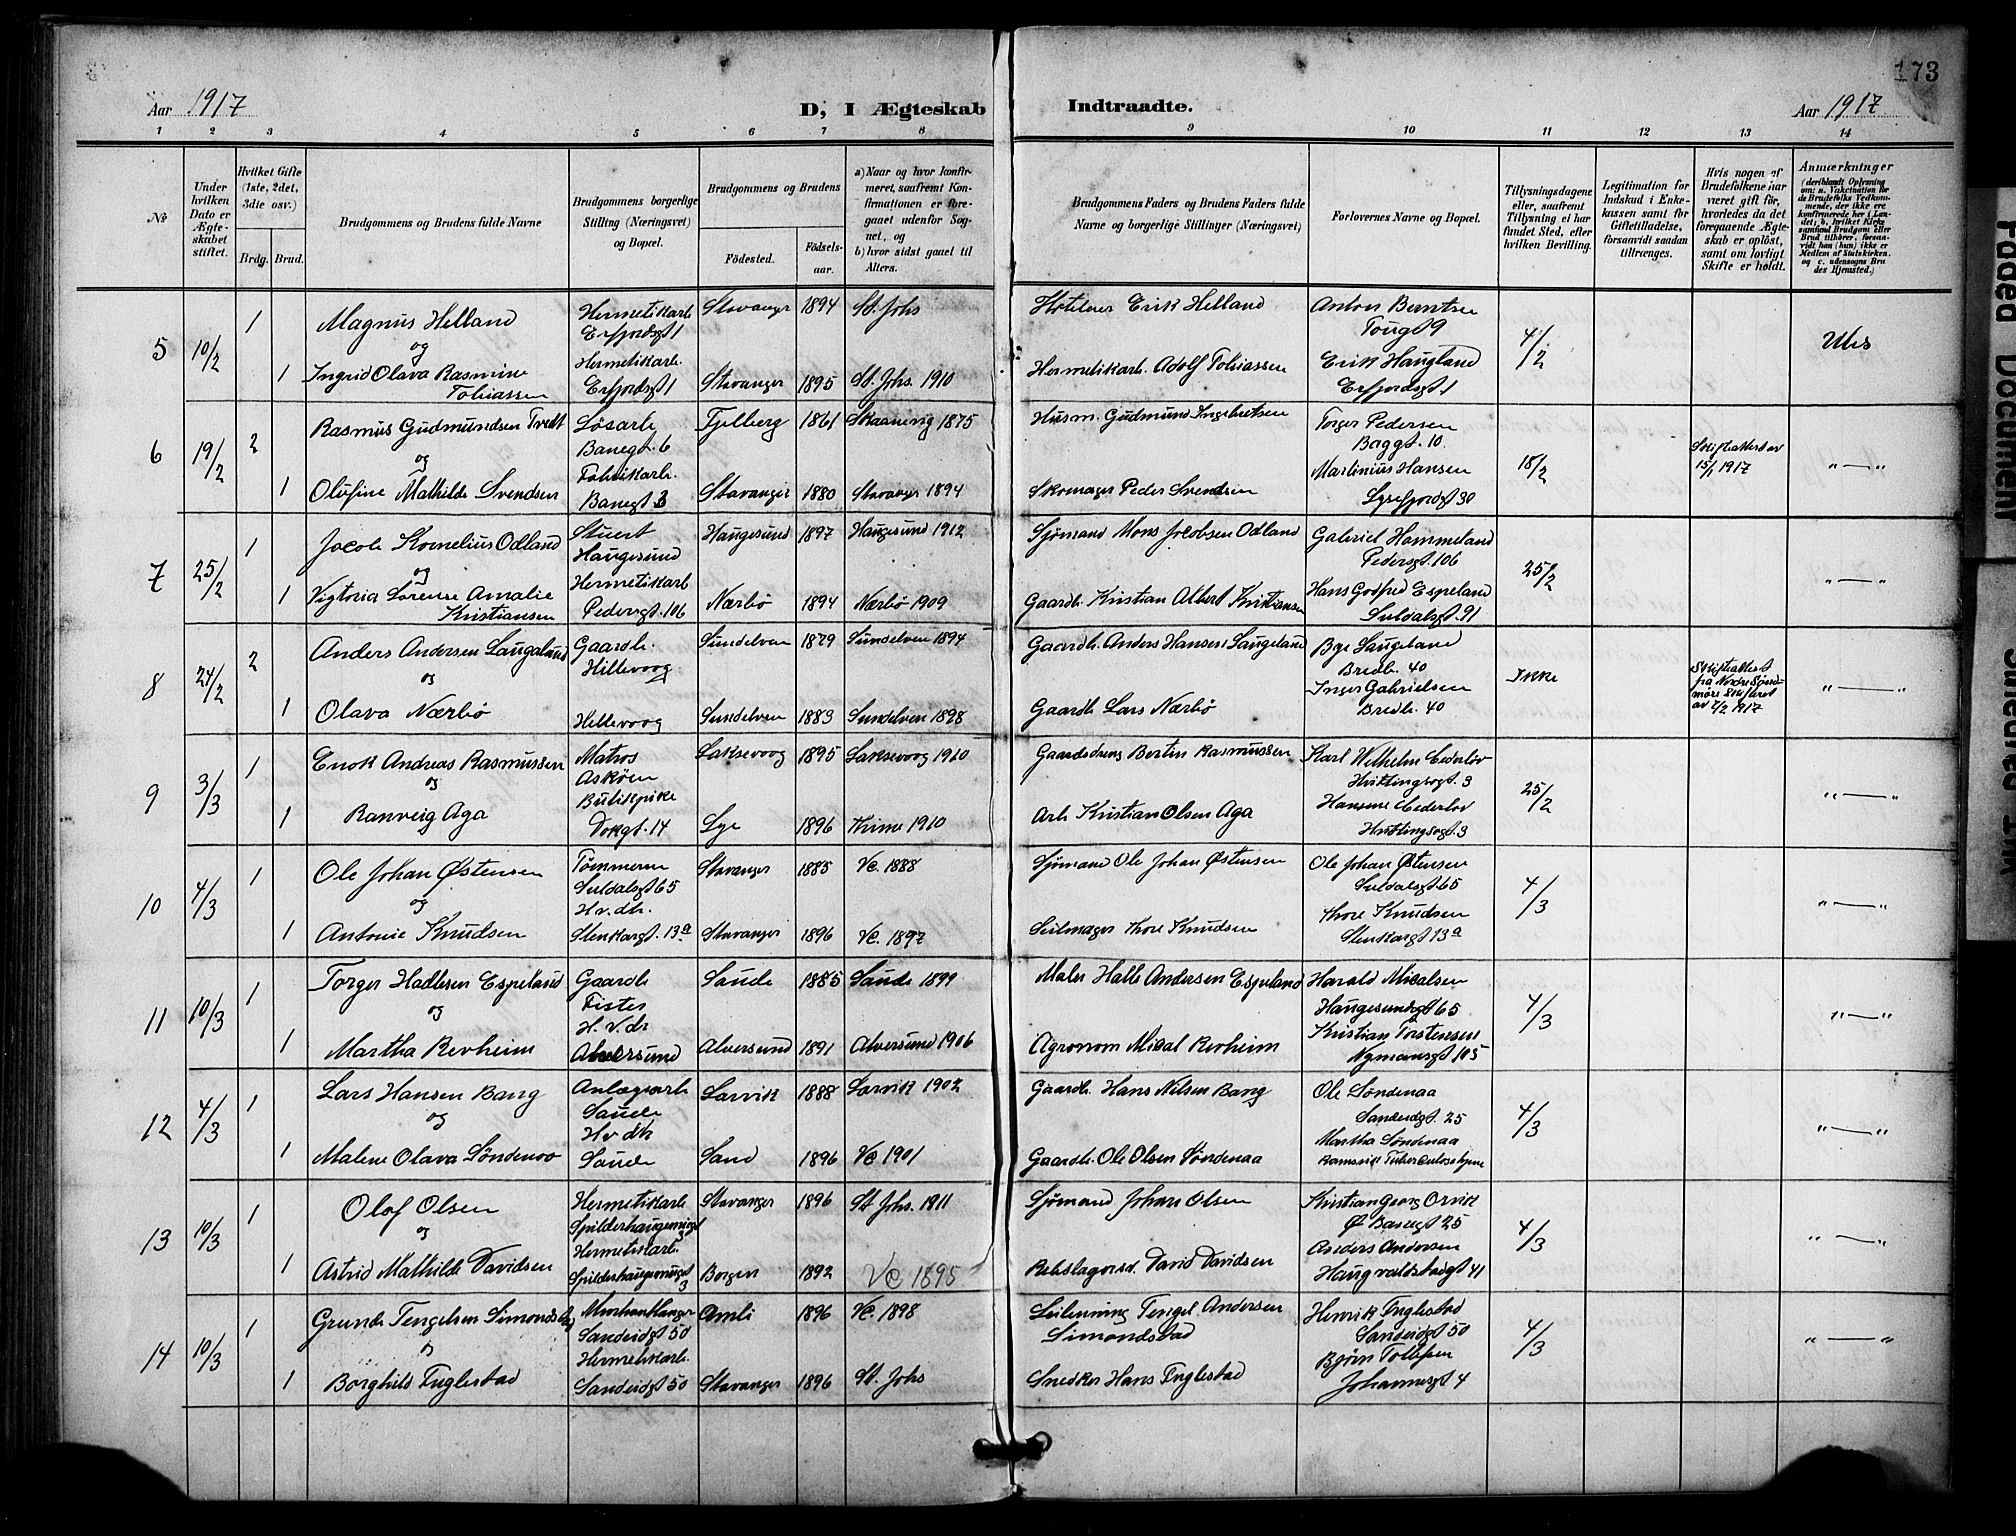 173
Aar 1917
D, I Ægteskab Indtraadte.
Aar 1917
1 2 3 4 5 6 7 8 9 10 11 12 13 14
No
Under hvilken Dato er Ægteskabet stiftet.
Hvilket Gifte (1ste, 2det, 3die osv.)
Brdg. Brud.
Brudgommens og Brudens fulde Navne
Brudgommens borgerlige Stilling (Næringsvei) og Bopæl.
Brudgommens og Brudens
Födested. Födselsaar.
a) Naar og hvor konfirmeret, saafremt Konfirmationen er foregaaet udenfor Sognet, og
b) hvor sidst gaaet til Alters.
Brudgommens Faders og Brudens Faders fulde Navne og borgerlige Stillinger (Næringsvei)
Forlovernes Navne og Bopæl.
Tillysningsdagene eller, saafremt Tillysning ei har fundet Sted, efter hvilken Bevilling.
Legitimation for Indskud i Enkekassen samt for Giftetilladelse, forsaavidt saadan tiltrænges.
Hvis nogen af Brudefolkene har været gift før, hvorledes da det foregaaende Ægteskab er oplöst, samt om lovligt Skifte er holdt.
Anmærkninger
(deriblandt Oplysning om: a. Vakcination for de Brudefolks Vedkommende, der ikke ere konfirmerede her i Landet; b. hvilket Kirkesamfund Brudgom eller Brud tilhörer, forsaavidt han (hun) ikke er Medlem af Statskirken, og c. udensogns Brudes Hjemsted.)
5 10/2 1 Magnus Helland Hermetikarb Erfjordsgt 1 Stavanger 1894 St. Johs Erik Helland Anton Berntsen 9 4/2
og
1 Ingrid Olava Rasmine Tobiassen Hermetikarb. Erfjordsgt 1 Stavanger 1895 St. Johs. 1910 Hermetikarb. Adolf Tobiassen Erik Haugland Erfjordsgt 1
6 19/2 2 Rasmus Gudmundsen Tvedt Løsarb Banegt. 6 Fjelberg 1861 Skaanevig 1875 Husm. Gudmund Ingebretsen Torger Pedersen Baggt. 10. 18/2 Skifteattest av 15/1 1917 " — "
og
1 Olufine Mathilde Svendsen Fabrikarb. Banegt 3 Stavanger 1880 Stavanger 1894 Skomager Peder Svendsen Martinius Hansen Lysefjordgt 30
7 25/2 1 Jacob Kornelius Odland Stuert Haugesund Haugesund 1897 Haugesund 1912 Sjømand Mons Jacobsen Odland Gabriel Hammeland Pedersgt. 106 25/2 " — "
og
1 Vigtoria Lorense Amalie Kristiansen Hermetikarb Pedersgt. 106 Nærbø 1894 Nærbø 1909 Gaardb. Kristian Albert Kristiansen Hans Godfred Espeland Suldalsgt. 91
8 24/2 2 Anders Andersen Laugaland Gaardb. Hillevaag Sundelven 1879 Sundelven 1894 Gaardb. Anders Hansen Laugeland Laugeland Bredb. 40 Ikke Skifteattest fra Nordre Søndmøre Skifteret av 7/2 1917 " — "
og
1 Olava Nærbø Hillevaag Sundelven 1883 Sundelven 1898 Gaardb Lars Nærbø Inger Gabrielsen Bredb. 40
9 3/3 1 Enok Andreas Rasmussen Matros Askøen Laksevaag 1895 Laksevaag 1910 Gaardsdreng Bertin Rasmussen Karl Wilhelm Cederlöv Hvitlingsøgt. 3 25/2 " — "
og
1 Ranveig Aga Butikpike Dokgt. 14 Lye 1896 Time 1910 Arb Kristian Olsen Aga Hansine Cederlöv Hvitlingsøgt. 3
10 4/3 1 Ole Johan Østensen Tømmerm Suldalsgt 65 Stavanger 1885 Vc. 1888 Sjømand Ole Johan Østensen Ole Johan Østensen Suldalsgt 65 4/3 " — "
og
1 Antonie Knudsen H. v. dtr. Stenkargt. 13a Stavanger 1896 Vc. 1897 Seilmager Thore Knudsen Thore Knudsen Stenkargt 13a
11 10/3 1 Torger Hadlesen Espeland Gaardb Fister Saude 1885 Saude 1899 Maler Halle Andersen Espeland Harald Micalsen Haugesundsgt 65 4/3 " — "
og
1 Martha Revheim H. v. dtr Alversund Alversund 1891 Alversund 1906 Agronom Mical Revheim Kristian Torstensen Nymansgt 105
12 4/3 1 Lars Hansen Bang Anlægsarb Saude Larvik 1888 Larvik 1902 Gaardb. Hans Nilsen Bang Ole Søndenaa Sandeidgt. 25 4/3 " — "
og
1 Malene Olava Søndenaa Hv dtr Saude Sand 1896 Vc 1901 Gaardb. Ole Olsen Søndenaa Martha Søndenaa Ramsvik Tuberculosehjem
13 10/3 1 Olaf Olsen Hermetikarb Stavanger 1896 St Johs. 1911 Sjømand Johan Olsen Kristian Georg Orvik Ø Banegt 25 4/3 " — "
og
1 Astrid Mathilde Davidsen Hermetikarb. 3 Bergen 1892 Vc 1895 David Davidsen Anders Andersen Haugvaldstadgt 41
14 10/3 1 Grunde Tengelsen Simondstad Sandeidgt 50 Amli 1896 Vc. 1898 Tengel Andersen Simondstad Henrik Fuglestad Sandeidgt 50 4/3 " — "
1 Borghild Fuglestad Hermetikarb. Sandeidgt 50 Stavanger 1896 St. Johs Snedker Hans Fuglestad Bjørn Tollefsen Johannesgt 4
Faded Document
Smeared Ink